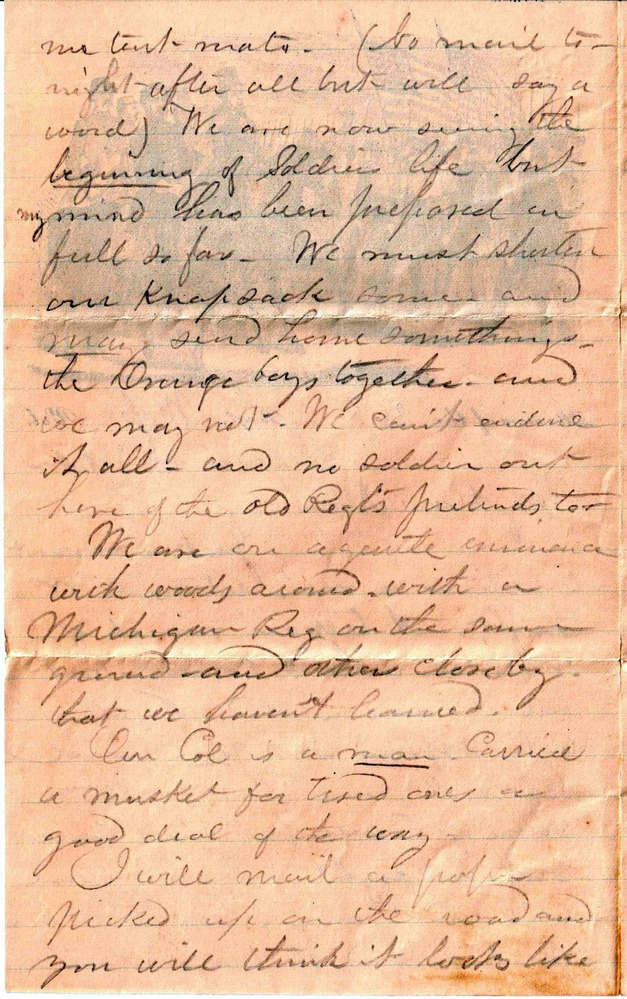 me tent mate. (No mail to-
night after all but will say a
word) We are now seeing the
beginning of Soldiers life but
my mind has been prepared in
full so far - We must shorten
our Knapsack some - and
may send home somethings -
the Orange boys together - and
we may not - We can't endure
it all - and no soldier out
here of the old Regts pretends to -
We are on a quite eminence
with woods around - with a
Michigan Reg on the same
ground - and others close by -
that we haven't learned.
Our Col is a man Carried
a musket for tired ones a
good deal of the way -
I will mail a paper
picked up on the road and
you will think it looks like